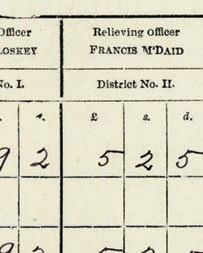 Officer Relieving Officer
LOSKEY FRANCIS M'DAID
No. I. District No. II.
s. £ s. d.
9 2 5 2 5